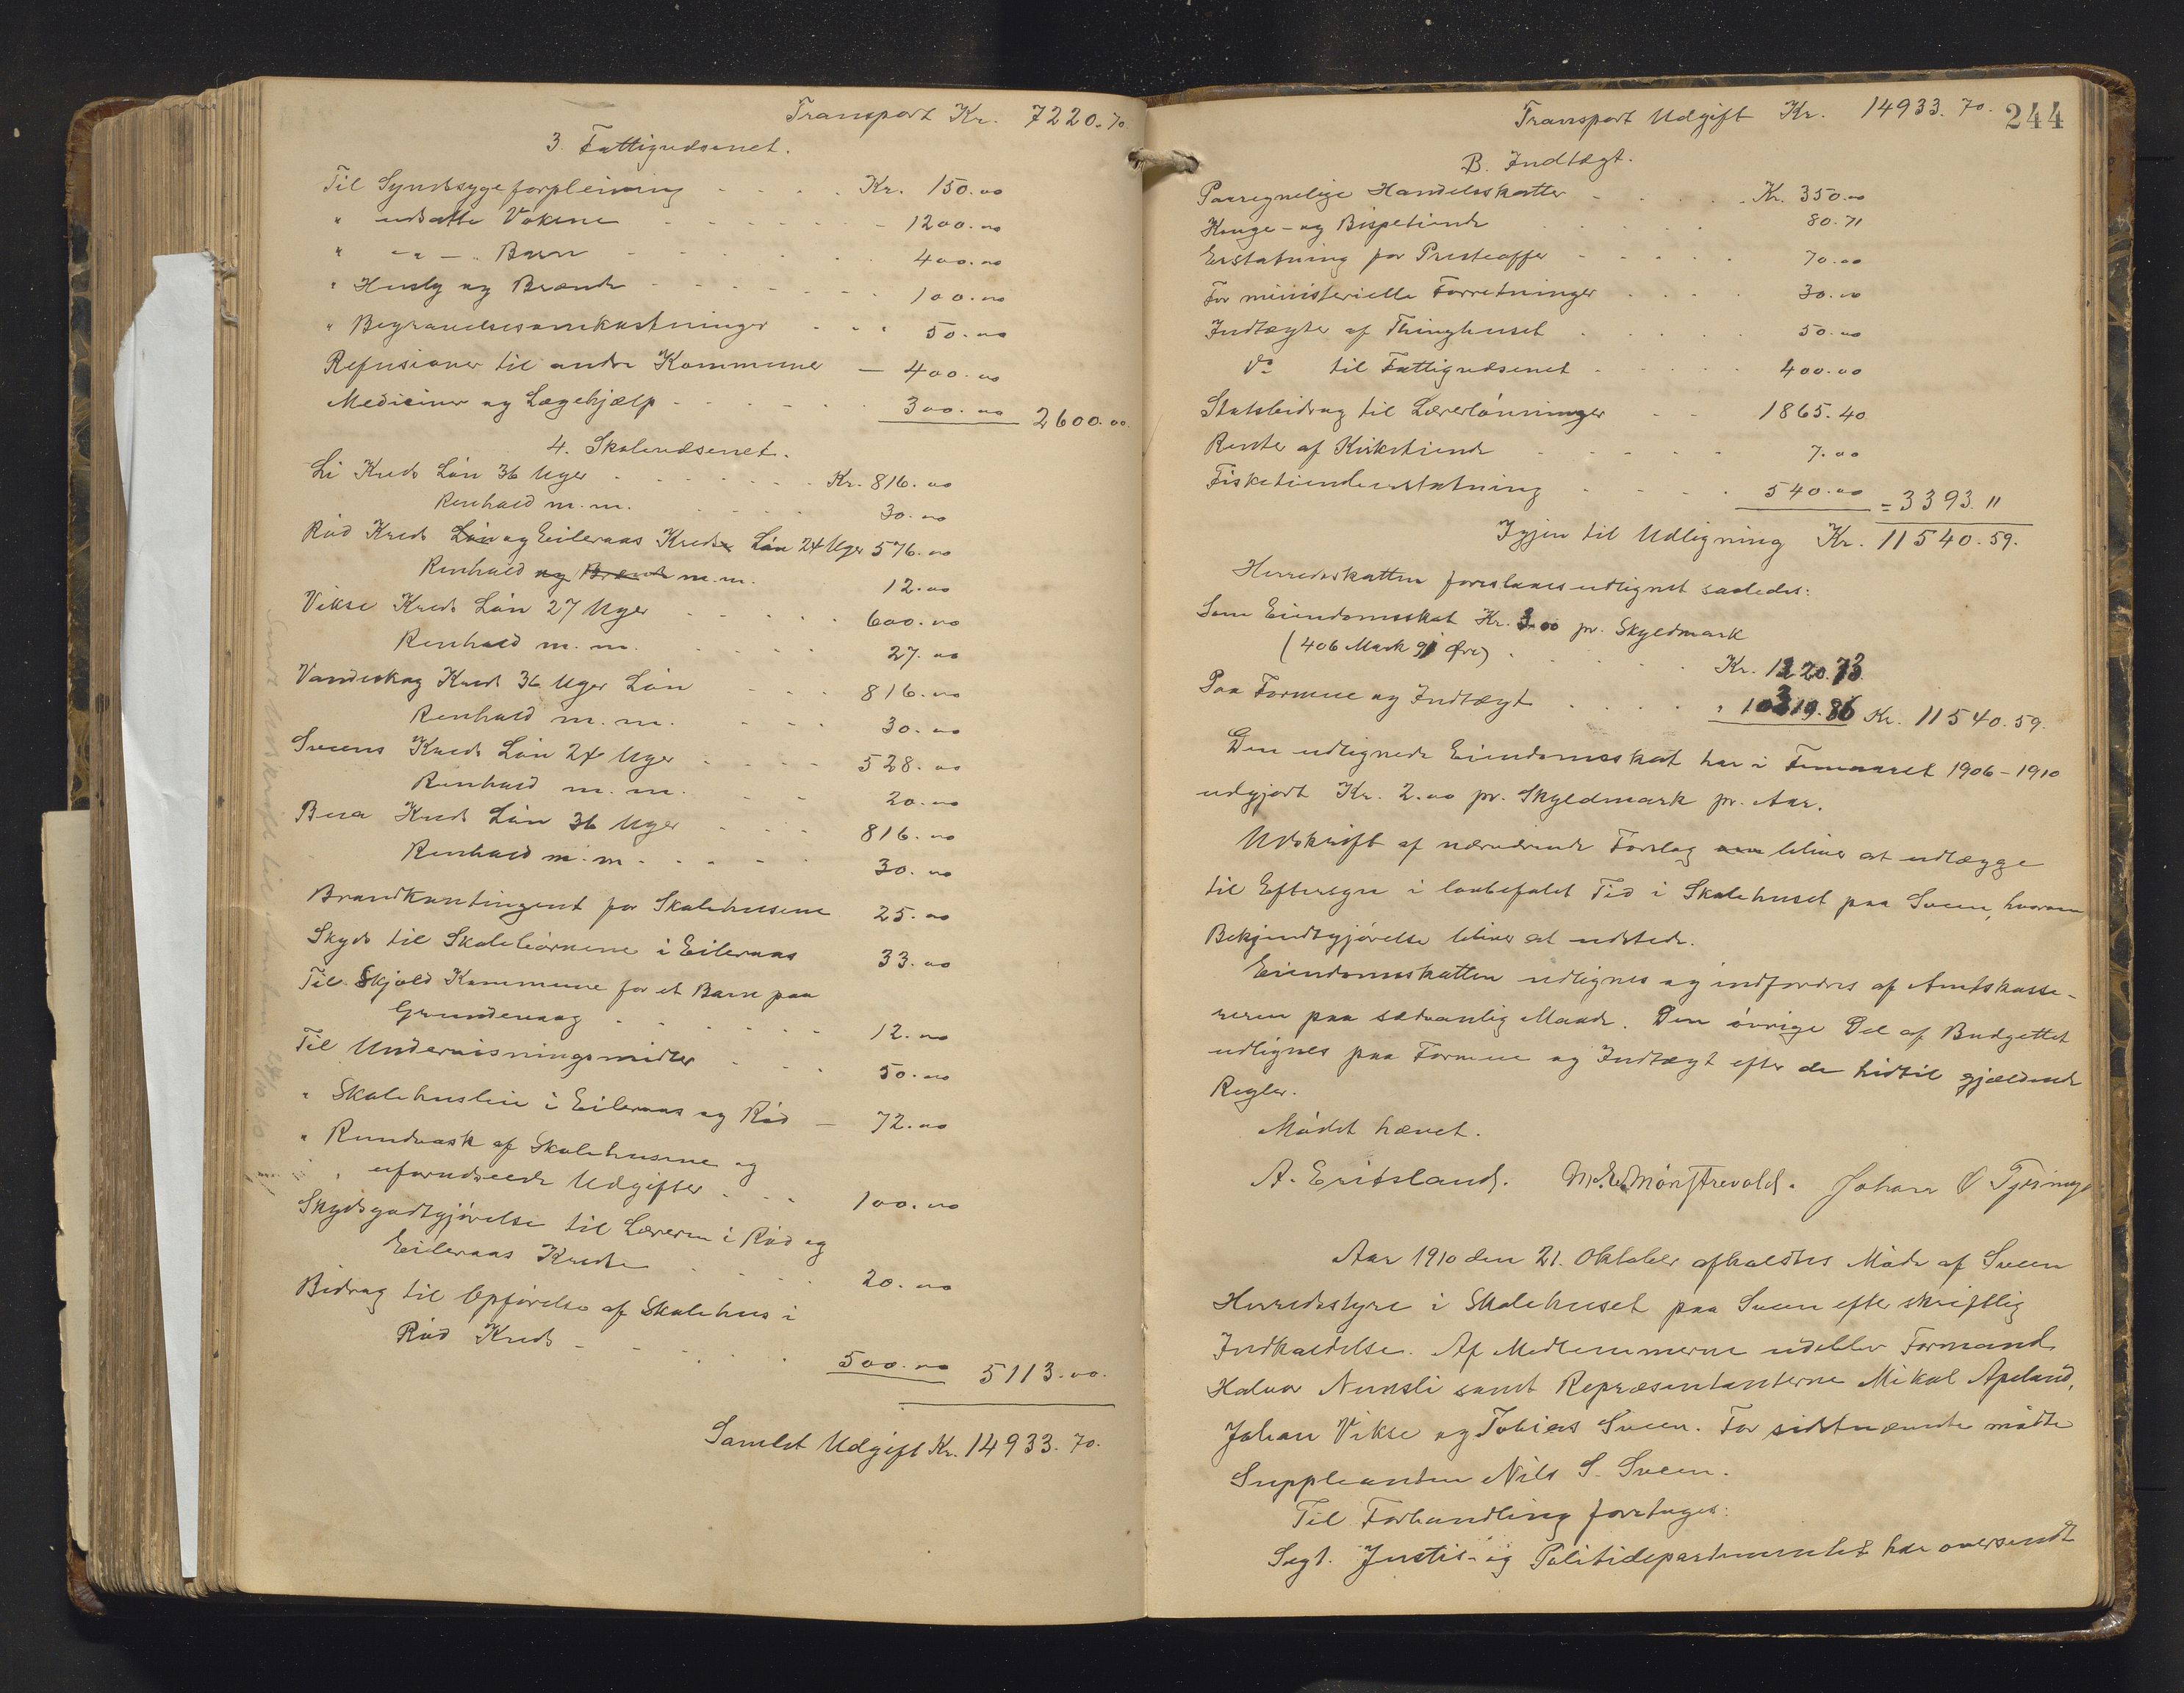 Transport Kr. 7220.70.
3. Fattigvæsenet.
Til Syndssygeforpleining Kr. 150.00
" udsatte Voksne 1200.00
" -"- Barn 400.00
" Husly og Brænde 100.00
" Begravelsesomkostninger 50.00
Refusioner til andre Kommuner - 400.00
Mediciner og Lægehjælp 300.00 2600.00.
4. Skolevæsenet.
Li Kreds Løn 36 Uger Kr. 816.00
Renhold m.m. 30.00
Rød Kreds Løn og Eileraas Kreds Løn 24 Uger 576.00
Renhold og Brænde m.m. 12.00
Vikse Kreds Løn 27 Uger 600.00
Renhold m.m. 27.00
Vandeskog Kreds 36 Uger Løn 816.00
Renhold m.m. 30.00
Sveens Kreds Løn 24 Uger 528.00
Renhold m.m. 20.00
Bua Kreds Løn 36 Uger 816.00
Renhold m.m. 30.00
Brandkontingent for Skolehusene 25.00
Skyds til Skolebørnene i Eileraas 33.00
Til Skjold Kommune for et Barn paa
Grundevaag 12.00
Til Undervisningsmidler 50.00
" Skolehusleie i Eileraas og Rød - 72.00
" Rundvask af Skolehusene og
" uforudseede Udgifter 100.00
Skydsgodtgjørelse til Læreren i Rød og
Eileraas Kredse 20.00
Bidrag til Opførelse af Skolehus i
Rød Kreds 500.00 5113.00.
Samlet Udgift Kr. 14933.70.
244
Transport Udgift Kr. 14933.70.
B. Indtægt.
Paaregnelige Handelsskatter Kr. 350.00
Konge- og Bispetiende 80.71
Erstatning for Presteoffer 70.00
For ministerielle Forretninger 30.00
Indtægter af Thinghuset 50.00
Do til Fattigvæsenet 400.00
Statsbidrag til Lærerlønninger 1865.40
Renter af Kirketiende 7.00
Fisketiendeerstatning 540.00 = 3393.11
Igjen til Udligning Kr. 11540.59.
Herredsskatten foreslaaes udlignet saaledes:
Som Eiendomsskat Kr. 3.00 pr. Skyldmark
(406 Mark 91 Øre) Kr. 1220.73
Paa Formue og Indtægt " 10319.86 Kr. 11540.59.
Den udlignede Eiendomsskat har i Femaaret 1906-1910
udgjort Kr. 2.00 pr. Skyldmark pr. Aar.
Udskrift af nærværende Forslag bliver at udlægge
til Eftersyn i lovbefalet Tid i Skolehuset paa Sveen, hvorom
Bekjendtgjørelse bliver at udstede.
Eiendomsskatten udlignes og indfordres af Amtskasse-
reren paa sædvanlig Maade. Den øvrige Del af Budgettet
udlignes paa Formue og Indtægt efter de hidtil gjældende
Regler.
Mødet hævet.
A. Eridsland. Johan
Aar 1910 den 21. Oktober afholdtes Møde af Sveen
Herredsstyre i Skolehuset paa Sveen efter skriftlig
Indkaldelse. Af Medlemmerne udeblev Formand
Halvor Numsli samt Repræsentanterne Mikal Apeland,
Johan Vikse og Tobias Sveen. For sidstnævnte mødte
Suppleanten Nils S. Sveen.
Til Forhandling foretages:
Sag 1. Justis- og Politidepartementet har oversendt